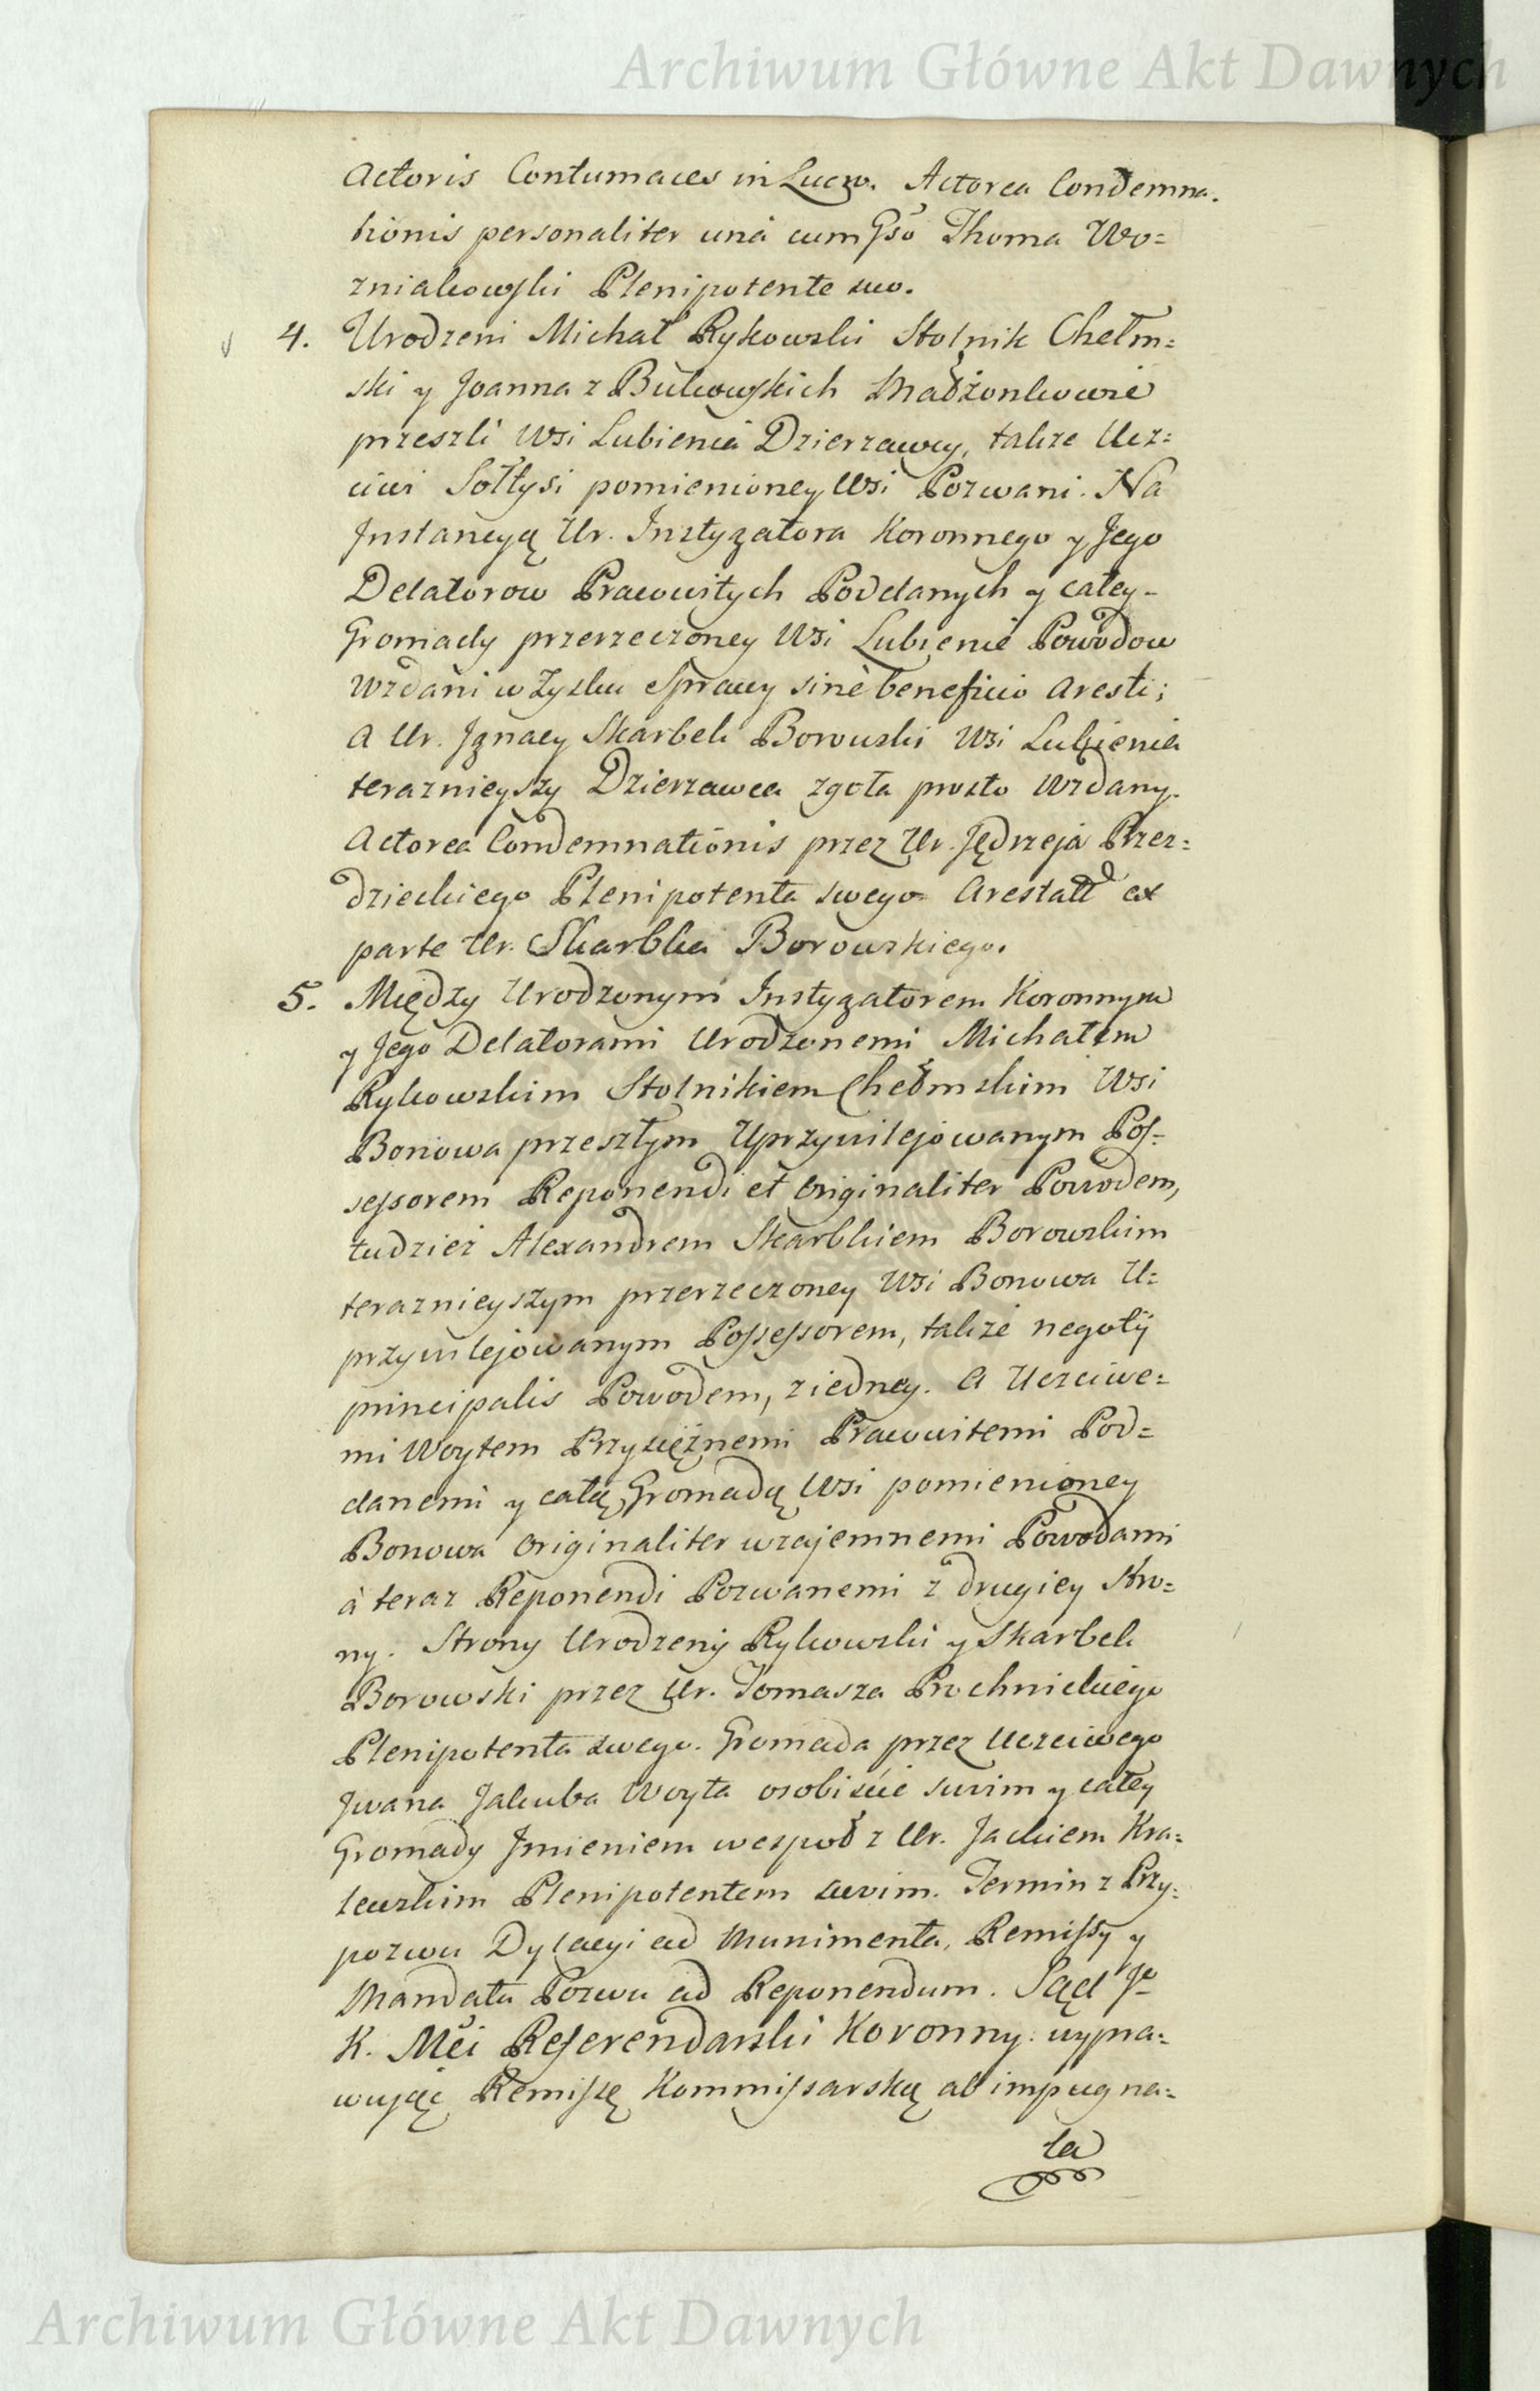 Archiwum Główne Akt Dawnych
Actoris Contumaces in Lucro. Actorea Condemna-
tionis personaliter unà cum Gso Thoma Wo=
zniakowski Plenipotente suo.
4. Urodzeni Michał Rykowski Stolnik Chełm=
ski y Joanna z Bukowskich Małżonkowie
przeszli Wsi Lubienia Dzierzawcy, także Ucz=
ciwi Sołtysi pomienioney Wsi Pozwani. Na
Jnstancyą Ur. Instygatora Koronnego y Jego
Delatorow Pracowitych Poddanych y całey
Gromady przerzeczoney Wsi Lubienie Powodow
Wzdani w Zysku Sprawy sine beneficio Aresti;
A Ur. Jgnacy Skarbek Borowski Wsi Lubienia
teraznieyszy Dzierzawca zgoła prosto Wzdany.
Actorea Condemnationis przez Ur. Jędrzeja Przez=
dzieckiego Plenipotenta swego Arestatt ex
parte Ur. Skarbka Borowskiego.
5. Między Urodzonym Instygatorem Koronnym
y Jego Delatorami Urodzonemi Michałem
Rykowskim Stolnikiem Chełmskim Wsi
Bonowa przeszłym Uprzywilejowanym Pos=
sessorem Reponendi et Originaliter Powodem,
tudzież Alexandrem Skarbkiem Borowskim
teraznieyszym przerzeczoney Wsi Bonowa U=
przywilejowanym Possessorem, także negotÿ
principalis Powodem, z iedney. A Uczciwe=
mi Woytem Przysiężnemi Pracowitemi Pod=
danemi y całą Gromadą Wsi pomienioney
Bonowa Originaliter wzajemnemi Powodami
à teraz Reponendi Pozwanemi z drugiey Stro=
ny. Strony Urodzeni Rykowski y Skarbek
Borowski przez Ur. Tomasza Prochnickiego
Plenipotenta swego. Gromada przez Uczciwego
Jwana Jakuba Woyta osobiście swim y całey
Gromady Jmieniem wespoł z Ur. Jackiem Kra=
lewskim Plenipotentem swim. Termin z Przy=
pozwu Dylacyi ad Munimenta, Remissy y
Mandatu Pozwu ad Reponendum. Sąd Jo
K. Mci Referendarski Koronny: wypra=
wując Remissę Kommissarską ab impugna=
ta
Archiwum Główne Akt Dawnych